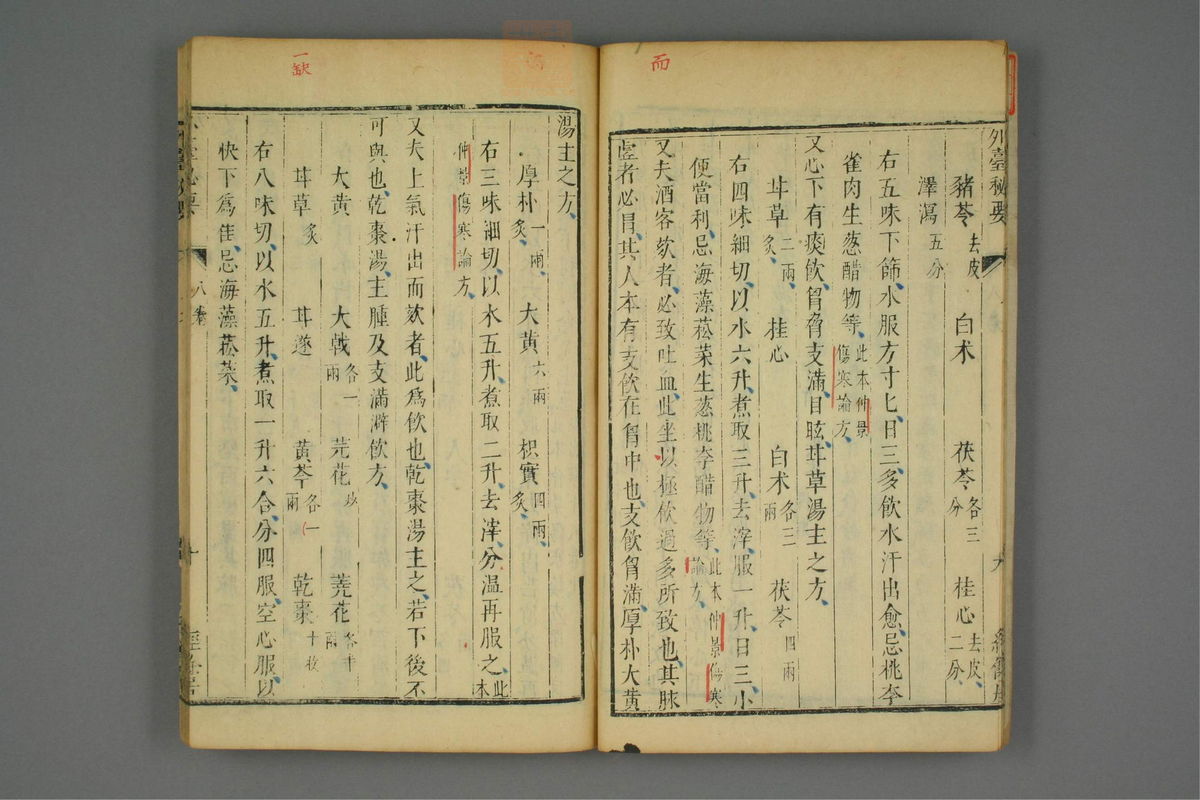 而
外臺秘要
豬苓去皮 白朮 茯苓各三分 桂心去皮二分
澤瀉五分
右五味下篩水服方寸匕日三多飲水汗出愈忌桃李
雀肉生葱醋物等此本仲景傷寒論方
又心下有痰飲胷脅支滿目眩甘草湯主之方
甘草二兩炙 桂心 白朮各三兩 茯苓四兩
右四味細切以水六升煮取三升去滓服一升日三小
便當利忌海藻菘菜生葱桃李醋物等此本仲景傷寒論方
又夫酒客欬者必致吐血此坐以極飲過多所致也其脉
虛者必冒其人本有支飲在胷中也支飲胷滿厚朴大黃
一缺
湯主之方
厚朴一兩炙 大黃六兩 枳實四兩炙
右三味細切以水五升煮取二升去滓分温再服之此本
仲景傷寒論方
又夫上氣汗出而欬者此爲飲也乾棗湯主之若下後不
可與也乾棗湯主腫及支滿澼飲方
大黃 大戟各一兩 芫花 蕘花各半兩
甘草炙 甘遂 黃芩各一兩 乾棗十枚
右八味切以水五升煮取一升六合分四服空心服以
快下爲佳忌海藻菘菜
八卷